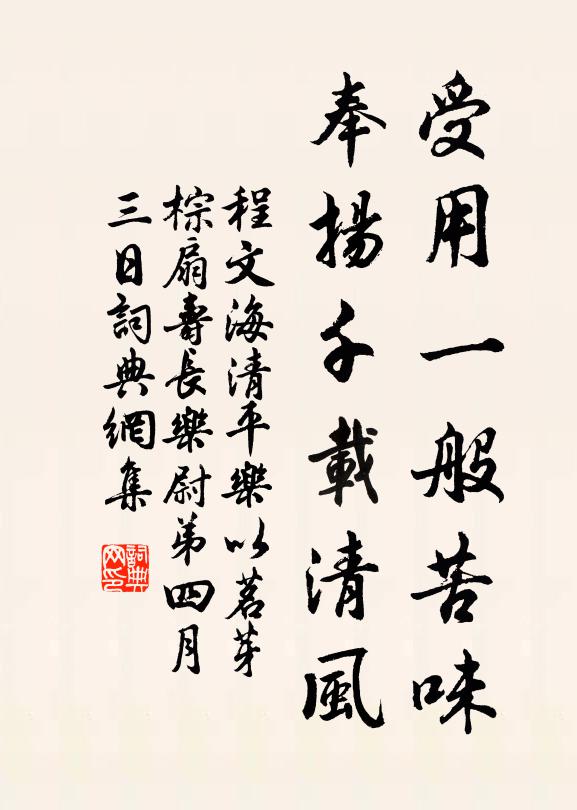 受用一般苦味
奉揚千載清風
程文海清平樂以茗芽
棕扇壽長樂尉第四月
三日詞典網集
詞典
网印